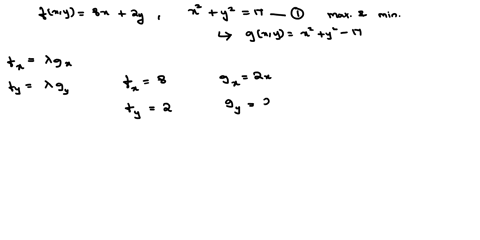 f(x,y) = 8x + 2y , x² + y² = 17 — ① max. & min.
↳ g(x,y) = x² + y² − 17
fx = λ gx
fy = λ gy
fx = 8 gx = 2x
fy = 2 gy =